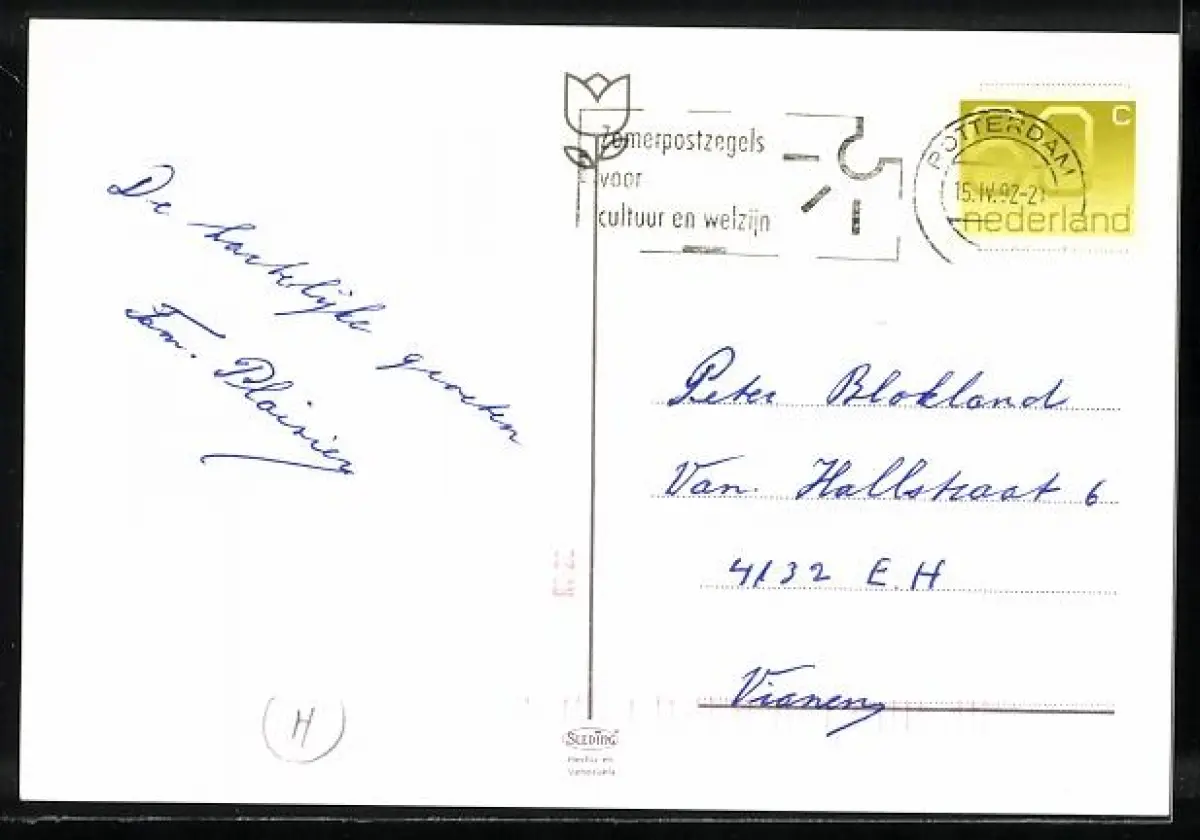 De hartelijke groeten
Fam. Plaisier
Zomerpostzegels
voor
cultuur en welzijn
ROTTERDAM
15.IV.92-21
c
nederland
Peter Blokland
Van. Hallstraat 6
4132 E.H
Vianen
H
SLEDING